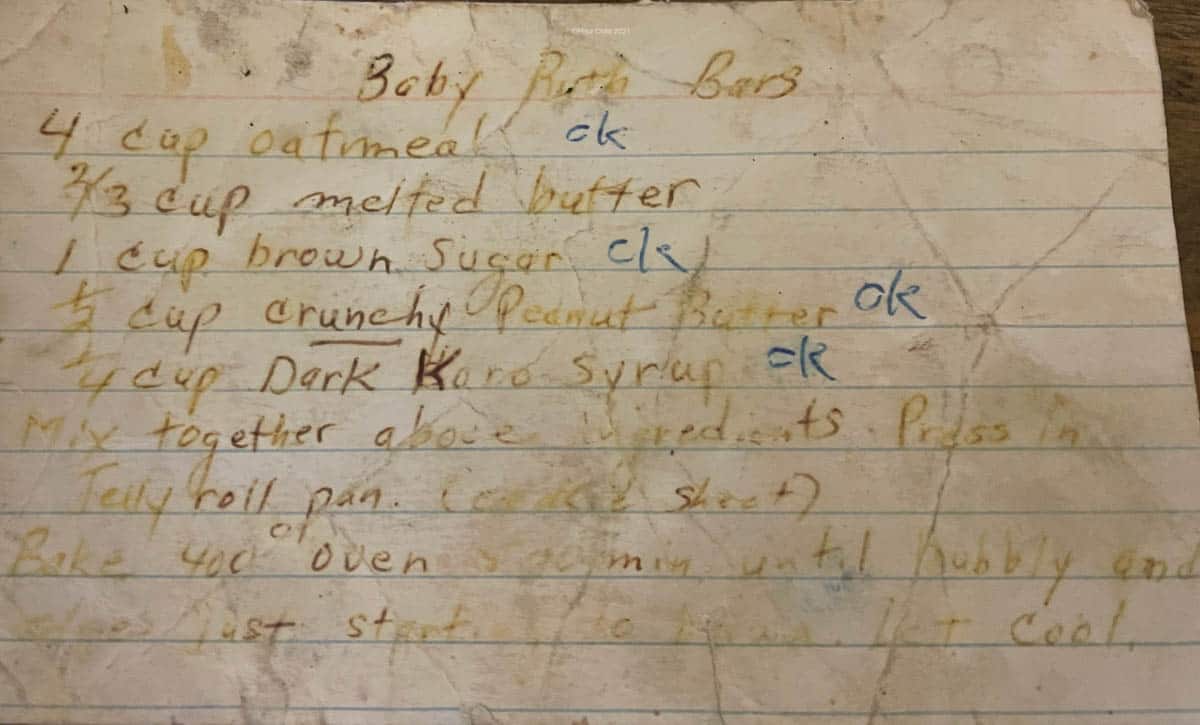 Baby Ruth Bars
4 cup oatmeal ok
2/3 cup melted butter
1 cup brown Sugar ok
1/2 cup crunchy Peanut Butter ok
1/4 cup Dark Karo Syrup ok
Mix together above ingredients. Press in
Jelly roll pan. (cookie sheet)
Bake 400° oven min until bubbly and
edges just starting to brown. Let Cool.